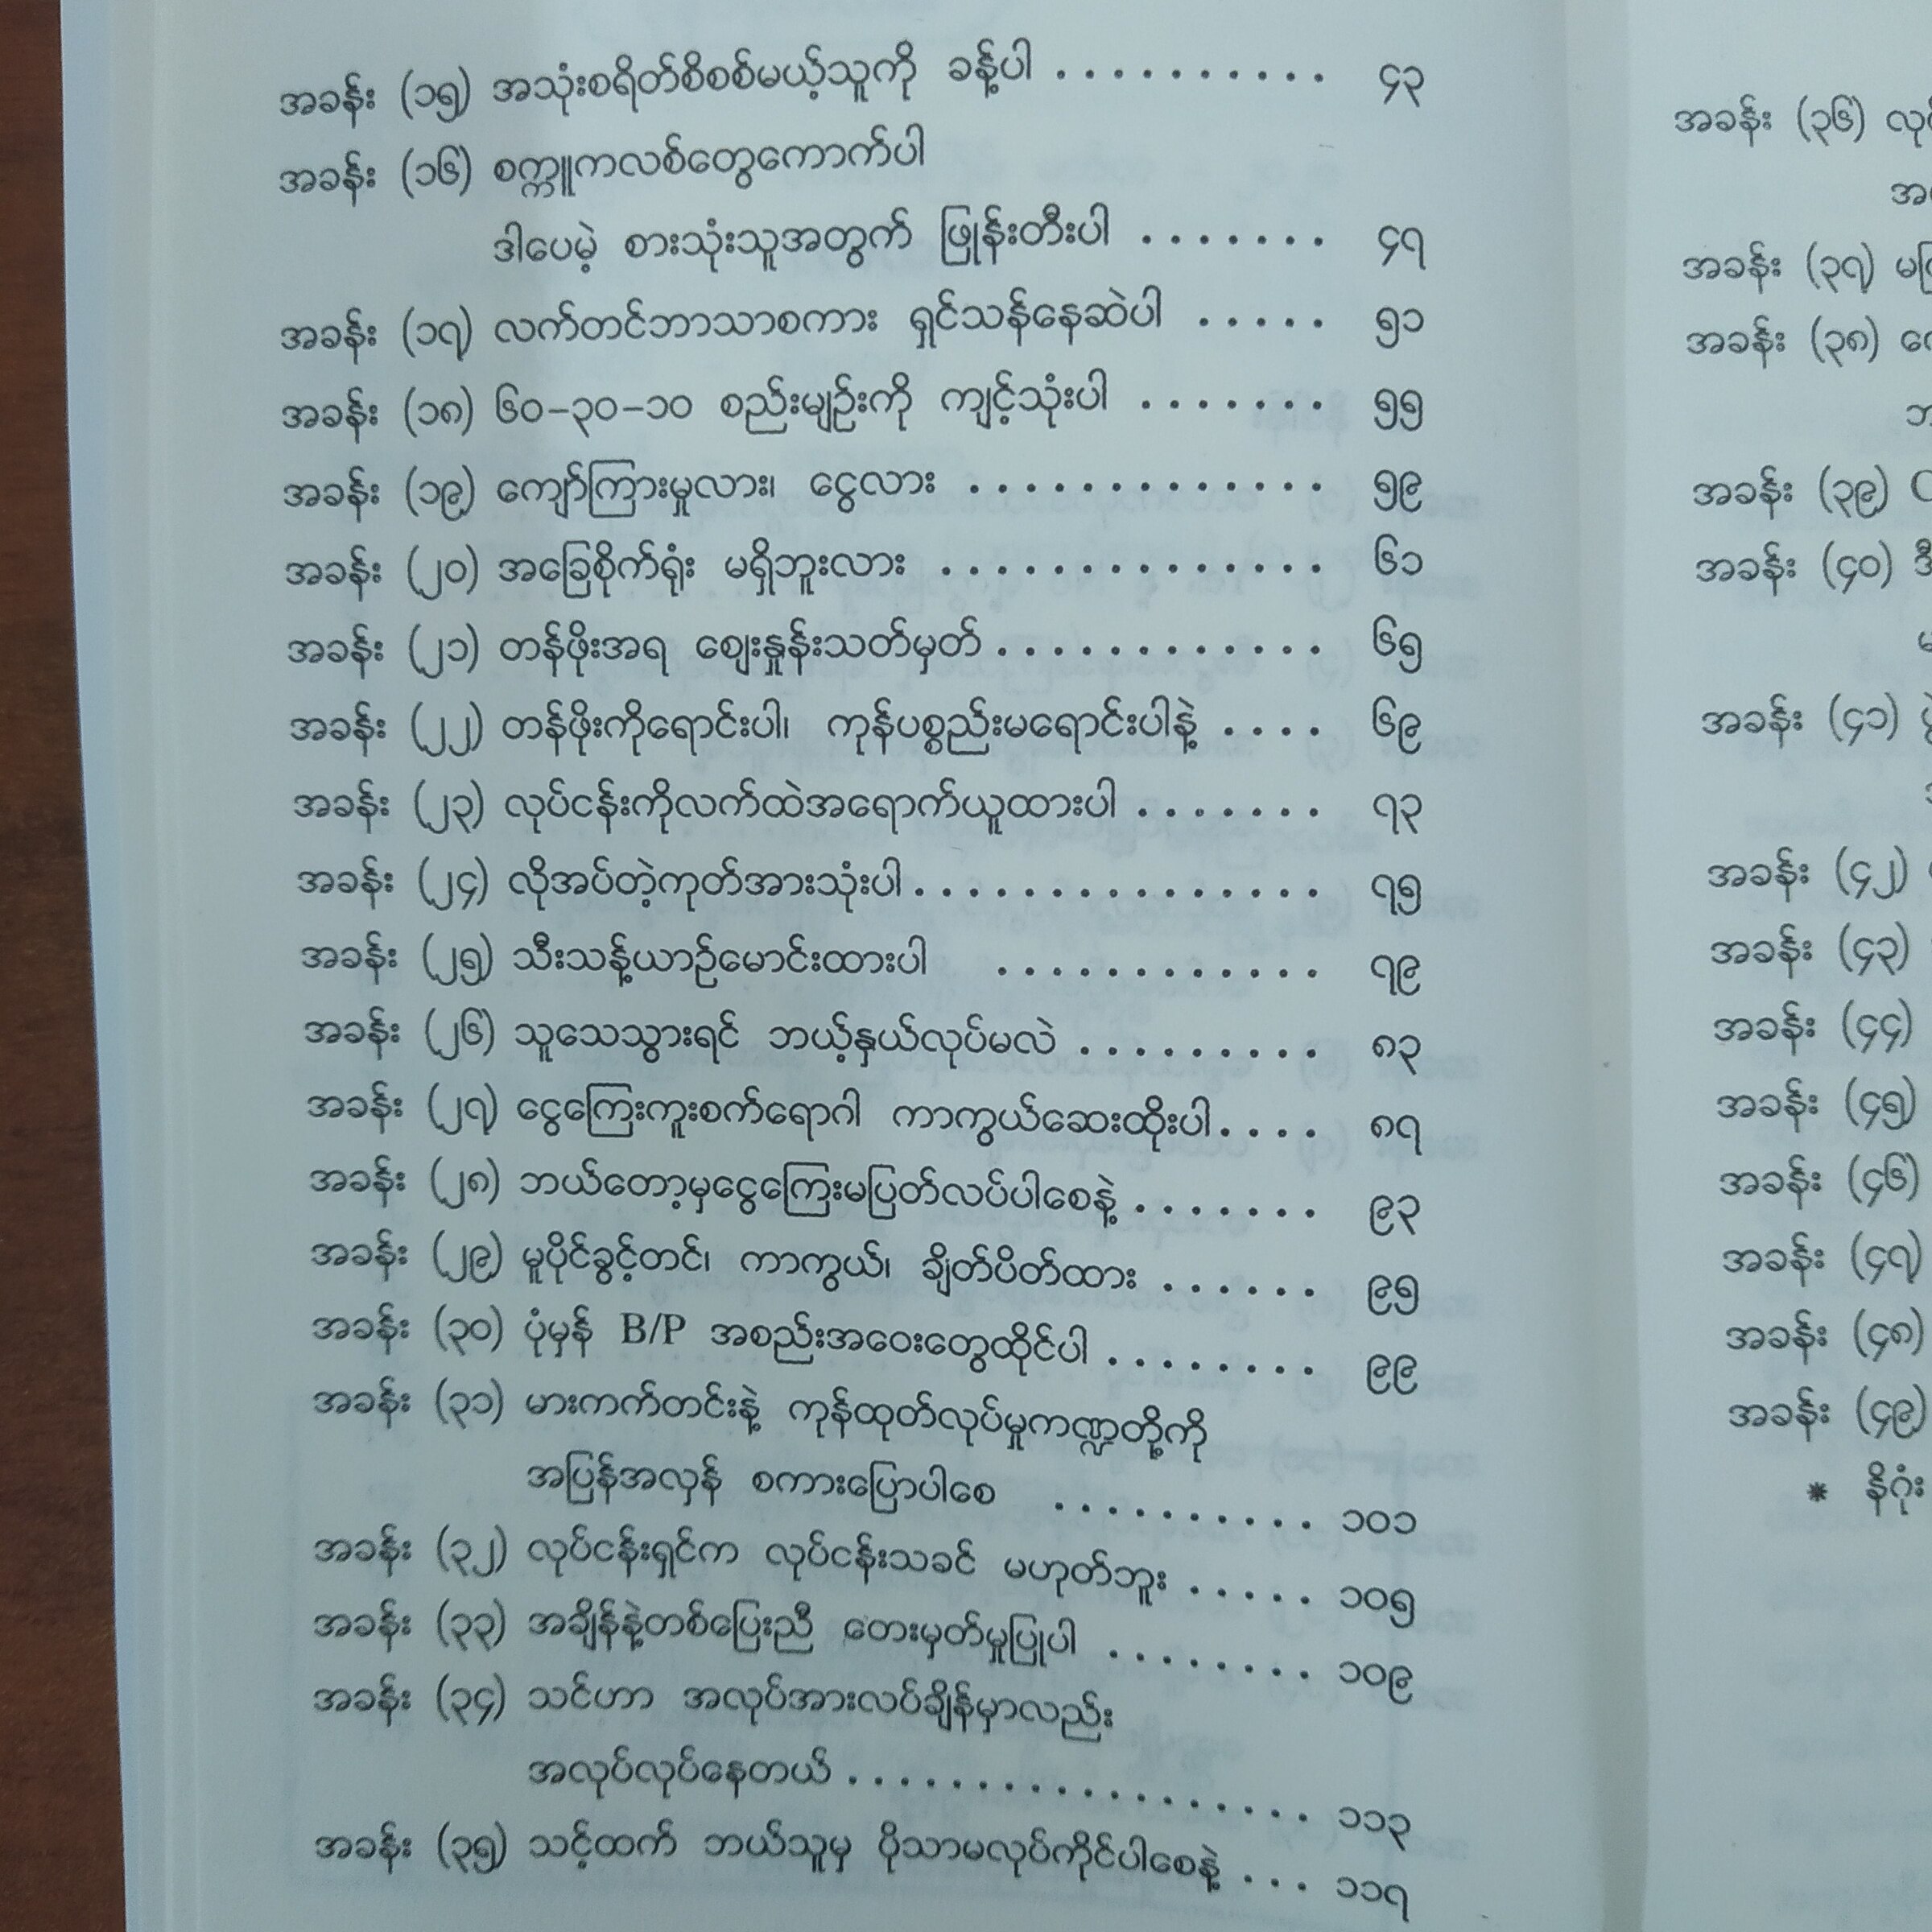 အခန်း (၁၅) အသုံးစရိတ်စိစစ်မယ့်သူကို ခန့်ပါ . . . . . . . . . . ၄၃
အခန်း (၁၆) စက္ကူကလစ်တွေကောက်ပါ
ဒါပေမဲ့ စားသုံးသူအတွက် ဖြုန်းတီးပါ . . . . . . . ၄၇
အခန်း (၁၇) လက်တင်ဘာသာစကား ရှင်သန်နေဆဲပါ . . . . . ၅၁
အခန်း (၁၈) ၆၀–၃၀–၁၀ စည်းမျဉ်းကို ကျင့်သုံးပါ . . . . . . . ၅၅
အခန်း (၁၉) ကျော်ကြားမှုလား၊ ငွေလား . . . . . . . . . . . . . ၅၉
အခန်း (၂၀) အခြေစိုက်ရုံး မရှိဘူးလား . . . . . . . . . . . . . . ၆၁
အခန်း (၂၁) တန်ဖိုးအရ ဈေးနှုန်းသတ်မှတ် . . . . . . . . . . . . ၆၅
အခန်း (၂၂) တန်ဖိုးကိုရောင်းပါ၊ ကုန်ပစ္စည်းမရောင်းပါနဲ့ . . . . ၆၉
အခန်း (၂၃) လုပ်ငန်းကိုလက်ထဲအရောက်ယူထားပါ . . . . . . . ၇၃
အခန်း (၂၄) လိုအပ်တဲ့ကုတ်အားသုံးပါ . . . . . . . . . . . . . . . ၇၅
အခန်း (၂၅) သီးသန့်ယာဉ်မောင်းထားပါ . . . . . . . . . . . . ၇၉
အခန်း (၂၆) သူသေသွားရင် ဘယ့်နှယ်လုပ်မလဲ . . . . . . . . . ၈၃
အခန်း (၂၇) ငွေကြေးကူးစက်ရောဂါ ကာကွယ်ဆေးထိုးပါ . . . . ၈၇
အခန်း (၂၈) ဘယ်တော့မှငွေကြေးမပြတ်လပ်ပါစေနဲ့ . . . . . . . ၉၃
အခန်း (၂၉) မူပိုင်ခွင့်တင်၊ ကာကွယ်၊ ချိတ်ပိတ်ထား . . . . . . ၉၅
အခန်း (၃၀) ပုံမှန် B/P အစည်းအဝေးတွေထိုင်ပါ . . . . . . . . ၉၉
အခန်း (၃၁) မားကက်တင်းနဲ့ ကုန်ထုတ်လုပ်မှုကဏ္ဍတို့ကို
အပြန်အလှန် စကားပြောပါစေ . . . . . . . . . . ၁၀၁
အခန်း (၃၂) လုပ်ငန်းရှင်က လုပ်ငန်းသခင် မဟုတ်ဘူး . . . . . ၁၀၅
အခန်း (၃၃) အချိန်နဲ့တစ်ပြေးညီ တေးမှတ်မှုပြုပါ . . . . . . . . ၁၀၉
အခန်း (၃၄) သင်ဟာ အလုပ်အားလပ်ချိန်မှာလည်း
အလုပ်လုပ်နေတယ် . . . . . . . . . . . . . . . . . . ၁၁၃
အခန်း (၃၅) သင့်ထက် ဘယ်သူမှ ပိုသာမလုပ်ကိုင်ပါစေနဲ့ . . . ၁၁၇
အခန်း (၃၆)
အခန်း (၃၇)
အခန်း (၃၈)
အခန်း (၃၉)
အခန်း (၄၀)
အခန်း (၄၁)
အခန်း (၄၂)
အခန်း (၄၃)
အခန်း (၄၄)
အခန်း (၄၅)
အခန်း (၄၆)
အခန်း (၄၇)
အခန်း (၄၈)
အခန်း (၄၉)
* နိဂုံး